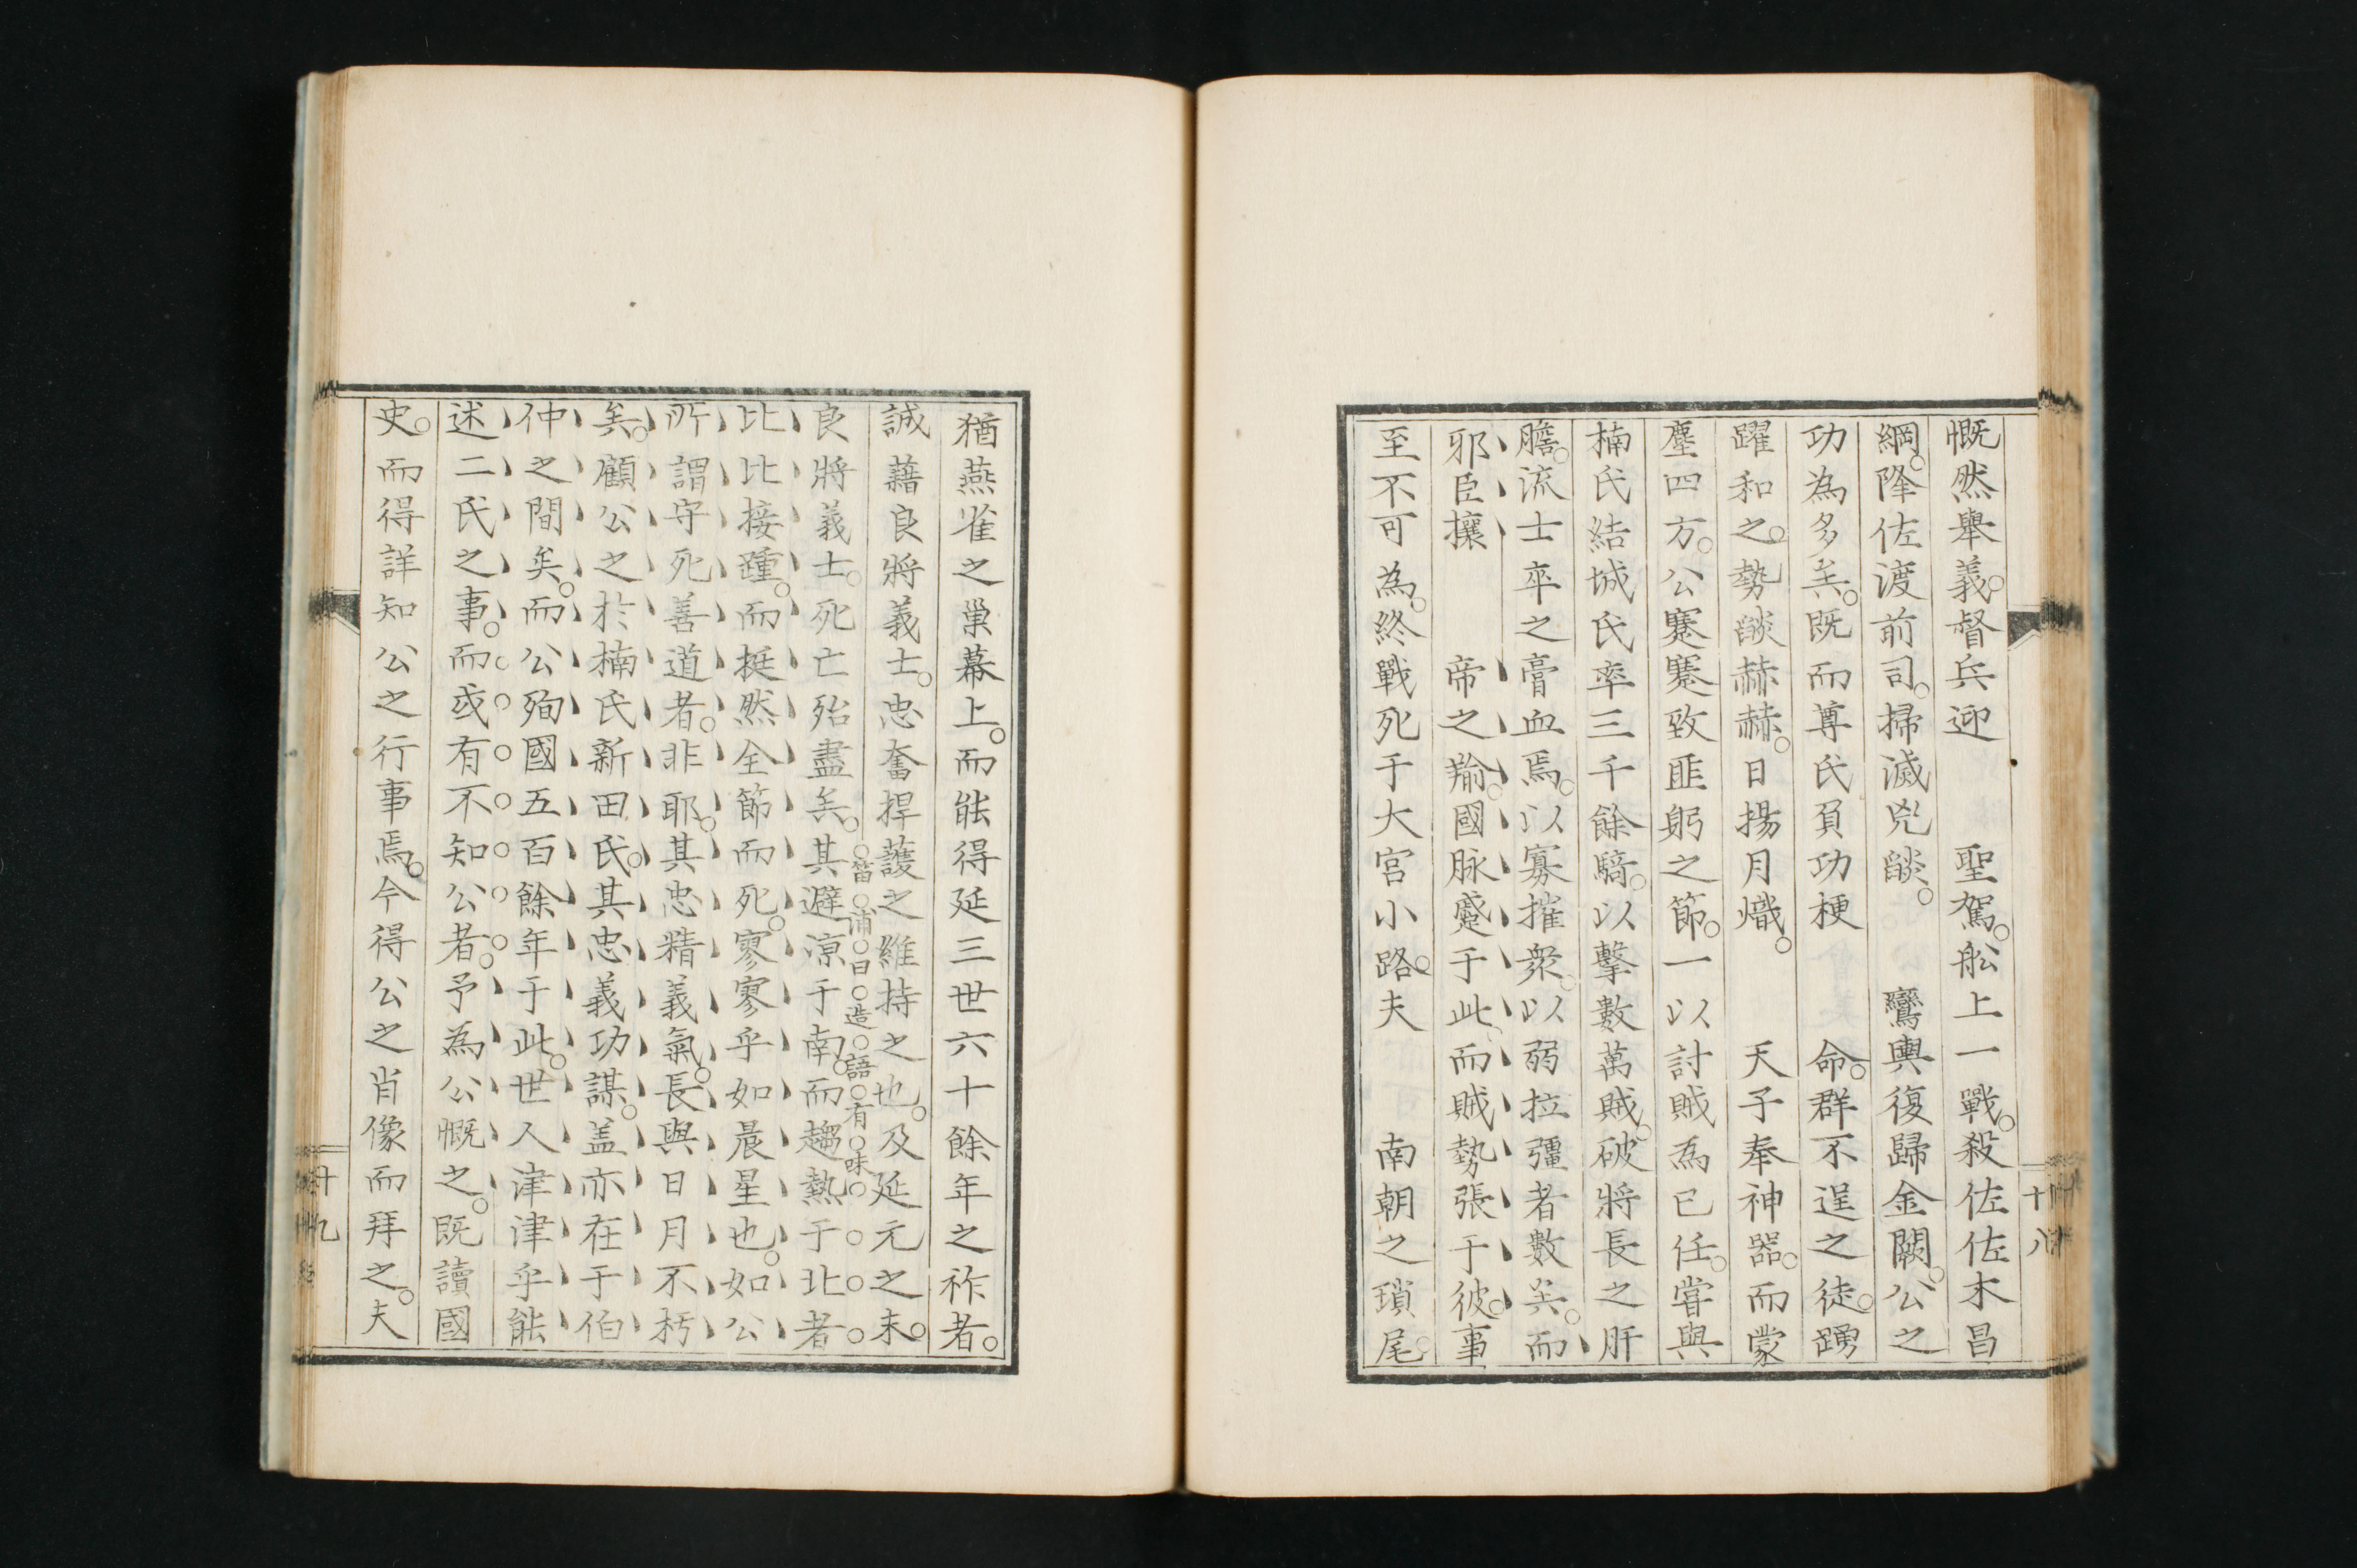 慨然舉義。督兵迎　聖駕。舩上一戰。殺佐佐木昌
綱。降佐渡前司。掃滅兇燄。　鸞輿復歸金闕。公之
功為多矣。既而尊氏負功梗　命。群不逞之徒。踴
躍和之。勢燄赫赫。日揚月熾。　天子奉神器。而蒙
塵四方。公蹇蹇致匪躬之節。一以討賊為已任。嘗與
楠氏結城氏率三千餘騎。以擊數萬賊。破將長之肝
膽。流士卒之膏血焉。以寡摧衆。以弱拉彊者數矣。而
邪臣攘　帝之羭。國脉蹙于此。而賊勢張于彼。事
至不可為。終戰死于大宮小路。夫　南朝之瑣尾。
十八
猶燕雀之巢幕上。而能得延三世六十餘年之祚者。
誠藉良將義士。忠奮捍護之維持之也。及延元之末。
菑浦曰造語有味
良將義士。死亡殆盡矣。其避凉于南。而趨熱于北者
比比接踵。而挺然全節而死。寥寥乎如晨星也。如公
所謂守死善道者。非耶。其忠精義氣。長與日月不朽
矣。顧公之於楠氏新田氏。其忠義功謀。盖亦在于伯
仲之間矣。而公殉國五百餘年于此。世人津津乎能
述二氏之事。而或有不知公者。予為公慨之。既讀國
史。而得詳知公之行事焉。今得公之肖像而拜之。夫
十九